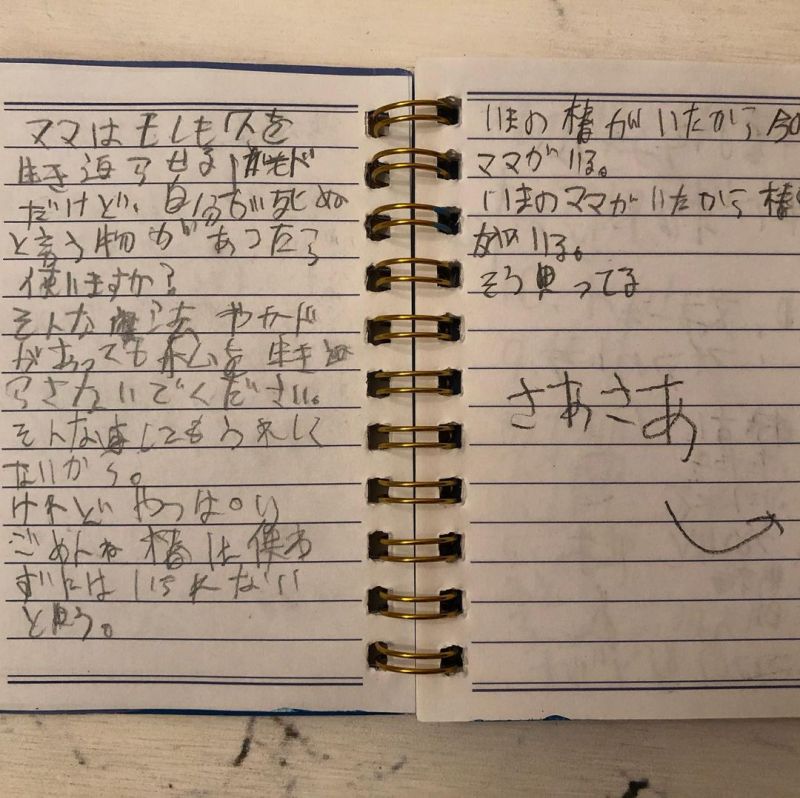 ママはもしも人を
生き返らせるカード
だけど、自分が死ぬ
と言う物があったら
使いますか?
そんな魔法やカード
があっても私を生き返
らさないでください。
そんな事してもうれしく
ないから。
けれどやっぱり
ごめんね 椿は使わ
ずにはいられない
と思う。
いまの椿がいたから今の
ママがいる。
いまのママがいたから椿
がいる。
そう思ってる
さあさあ